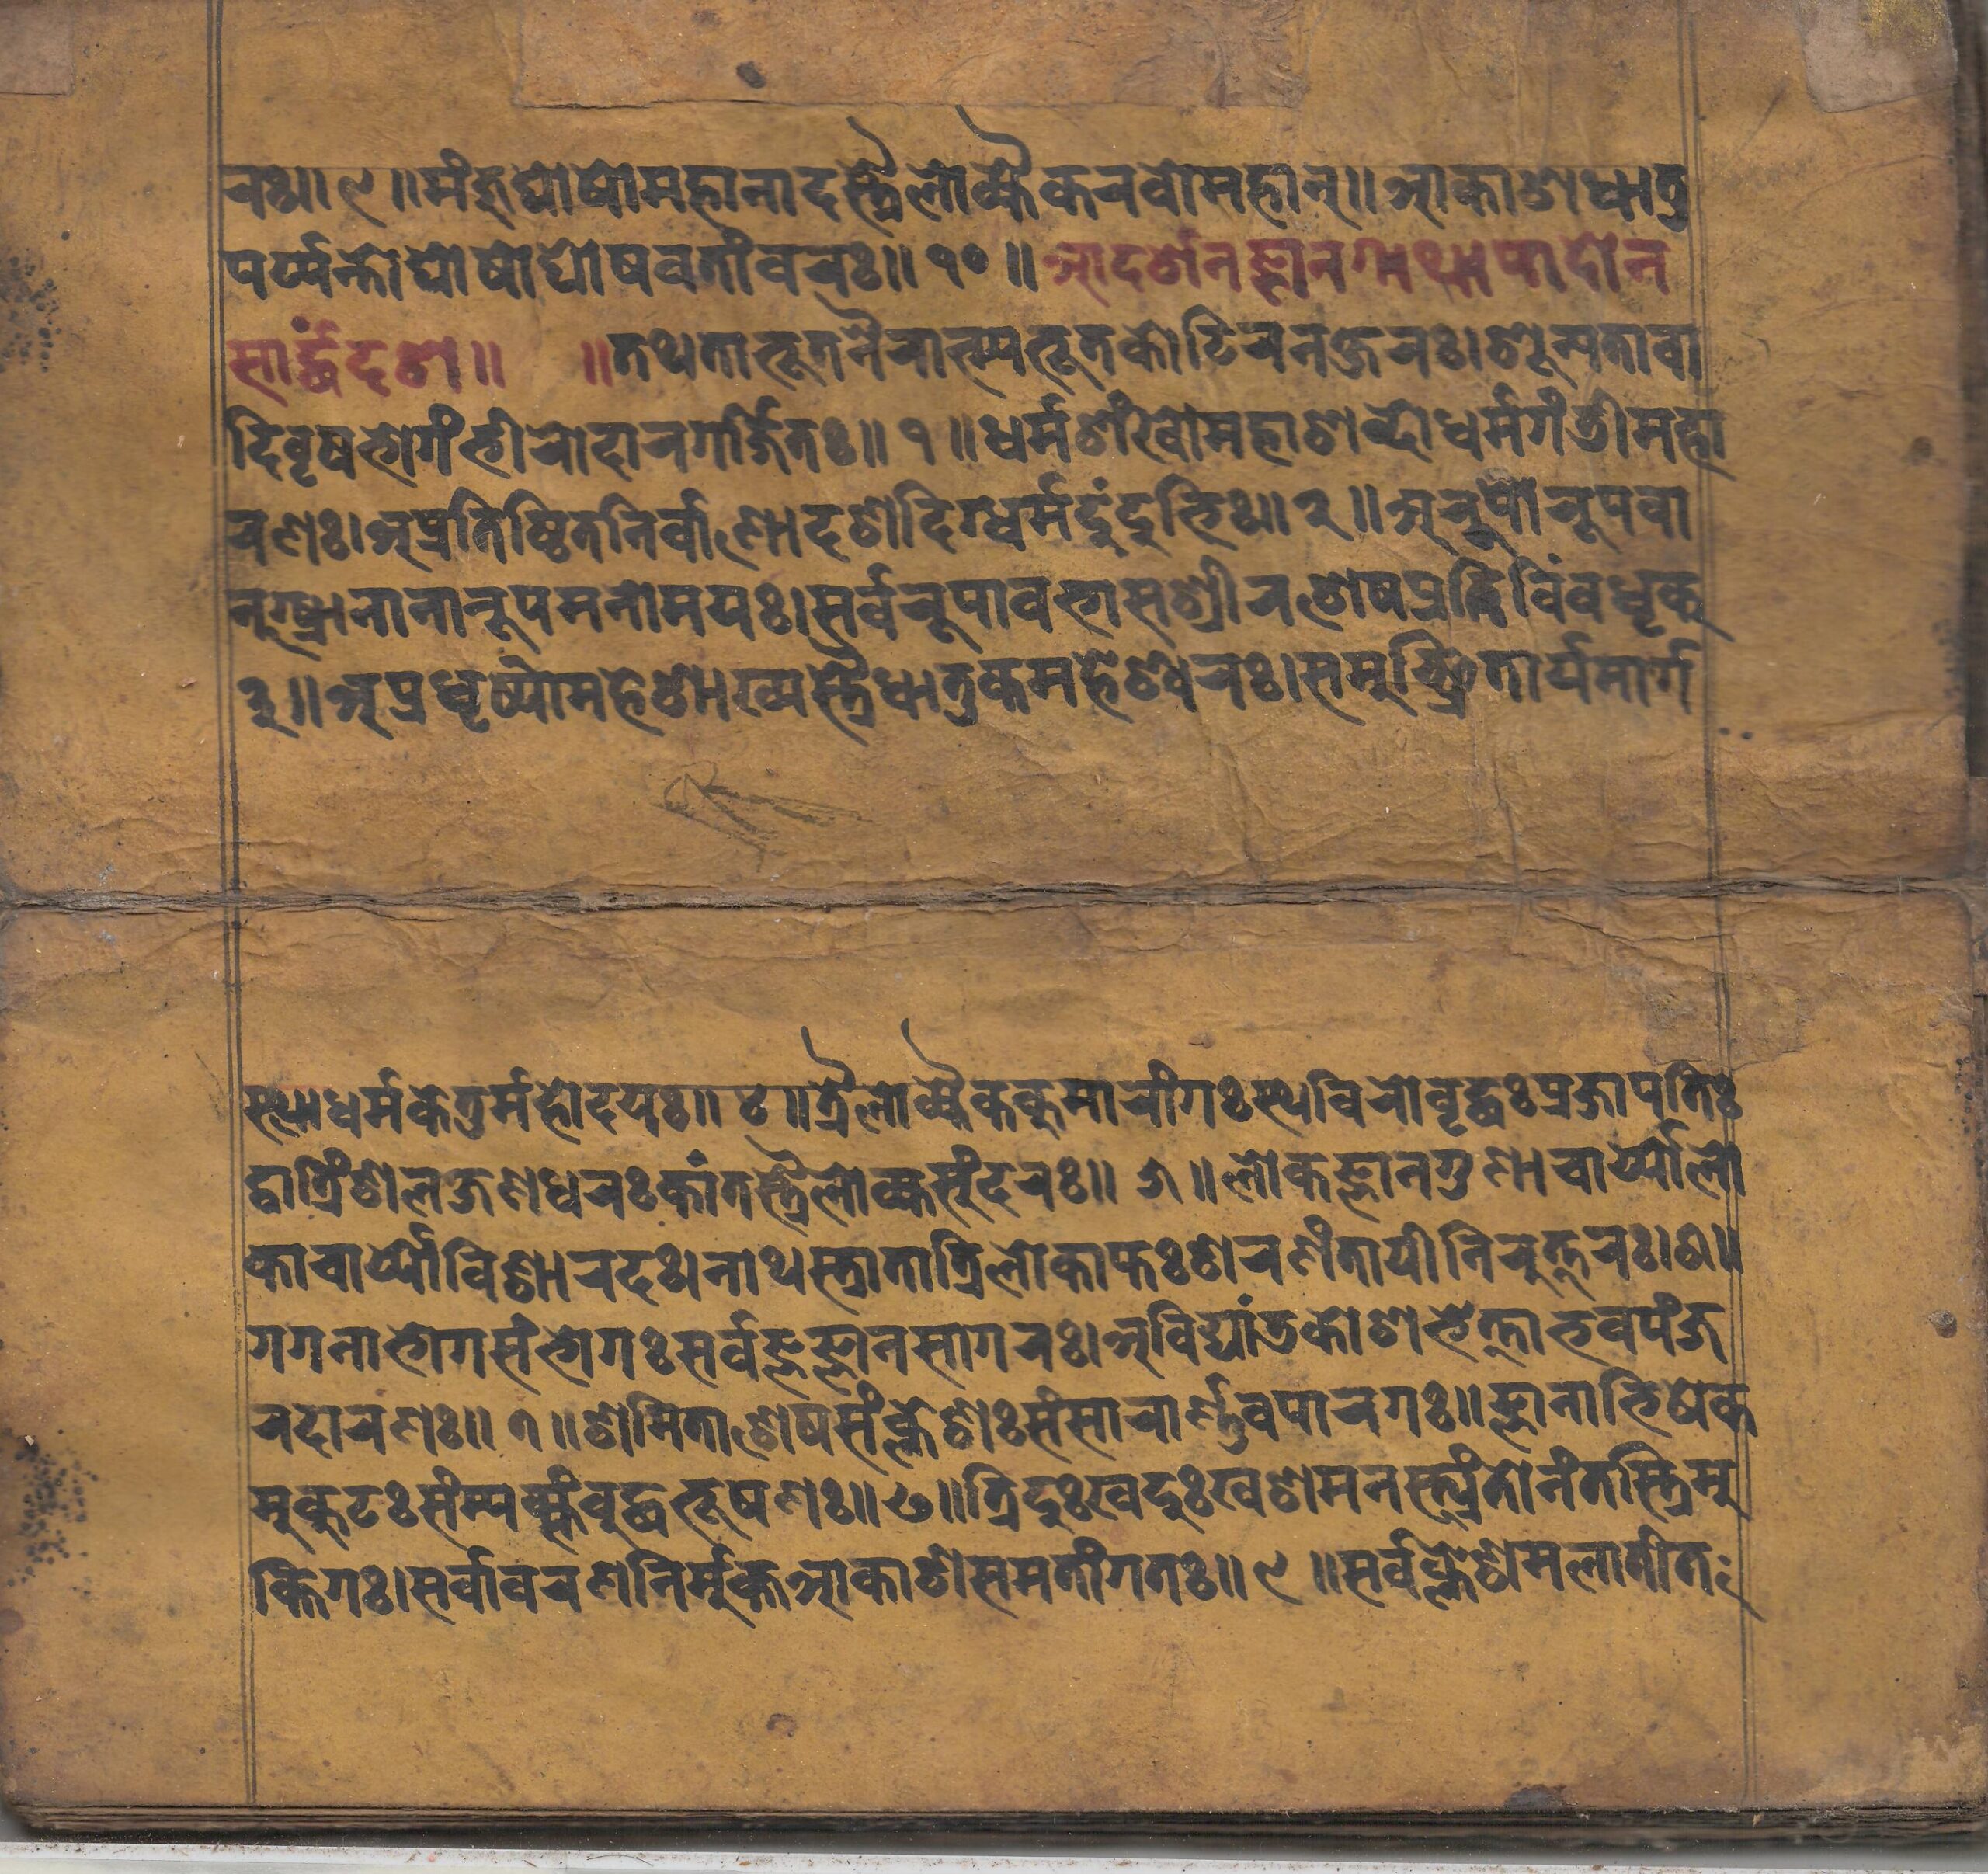 रः॥ ९ ॥मंजुघोषोमहानादस्त्रैलोक्यैकरवोमहान्॥आकाशधातु
पर्य्यन्तोघोषोघोषवतांवरः॥ १० ॥ आदर्शनज्ञानगाथापादोन
सार्द्धंदश॥ ॥तथताभूतनैरात्म्यभूतकोटिरनक्षरः।शून्यतावा
दिवृषभोगंभीरोदारगर्जितः॥ १ ॥धर्मशंखोमहाशब्दोधर्मगंडीमहा
रणः।अप्रतिष्ठितनिर्वाणोदशदिग्धर्मदुंदुभिः॥ २ ॥अरूपोरूपवा
नग्र्योनानारूपमनोमयः।सर्वरूपावभासश्रीरशेषप्रतिविंवधृक्
३॥अप्रधृष्योमहेशाख्यस्त्रैधातुकमहेश्वरः।समुच्छ्रितार्यमार्ग
स्थोधर्मकेतुर्महोदयः॥ ४ ॥त्रैलोक्यैककुमारांगःस्थविरोवृद्धःप्रजापतिः
द्वात्रिंशलक्षणधरःकांतस्त्रैलोक्यसुंदरः॥ ५ ॥लोकज्ञानगुणाचार्य्योलो
काचार्य्योविशारदः।नाथस्त्रातात्रिलोकाप्तःशरणंतायीनिरुत्तरः।६॥
गगनाभोगसंभोगःसर्वज्ञज्ञानसागरः।अविद्यांडकोशभेत्ताभवपंज
रदारणः॥ ७ ॥शमिताशेषसंक्लेशःसंसारार्णवपारगः॥ज्ञानाभिषेक
मुकुटःसंम्यक्संवुद्धभूषणः॥ ८॥त्रिदुःखदुःखशमनस्त्र्यंतोनंतस्त्रिमु
क्तिगः।सर्वावरणनिर्मुक्तआकाशसमतांगतः॥ ९ ॥सर्वक्लेशमलातीतः